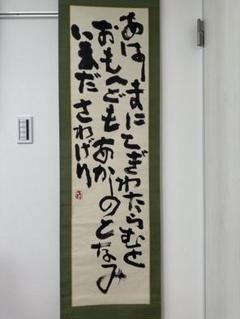 あはしまにこぎわたらむと
おもへどもあかしのとなみ
いまださわげり